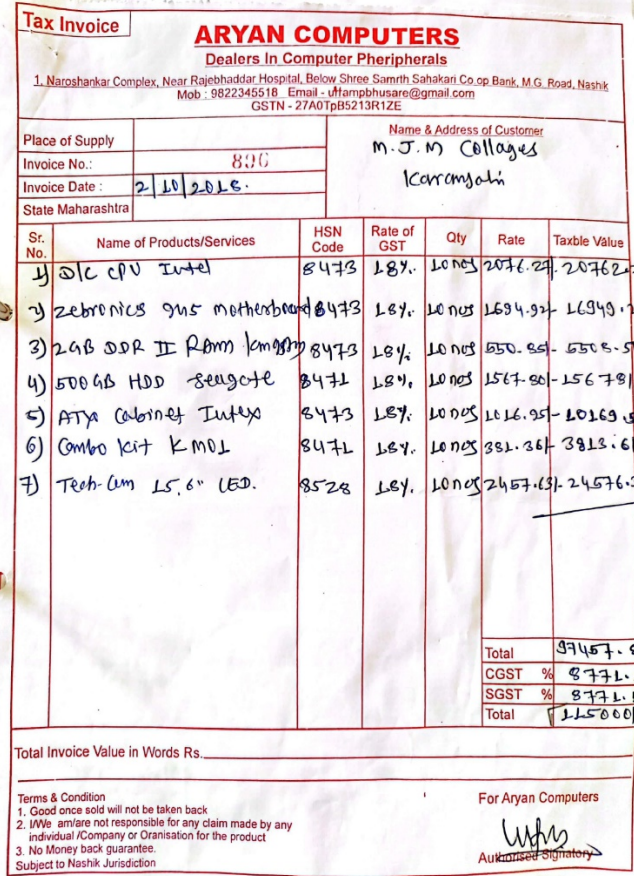 Tax Invoice
ARYAN COMPUTERS
Dealers In Computer Pheripherals
1, Naroshankar Complex, Near Rajebhaddar Hospital, Below Shree Samrth Sahakari Co.op Bank, M.G. Road, Nashik
Mob : 9822345518 Email - uttampbhusare@gmail.com
GSTN - 27A0TpB5213R1ZE
Place of Supply
Name & Address of Customer
M.J.M Collages
Invoice No.: 896
Karanjali
Invoice Date : 2/10/2018.
State Maharashtra
Sr. No. Name of Products/Services HSN Code Rate of GST Qty Rate Taxble Value
1) D/C CPU Intel 8473 18%. 10 nos 2076.27/- 20762.
2) Zebronics 945 motherboard 8473 18%. 10 nos 1694.92/- 16949.
3) 2GB DDR II RAM 8473 18%. 10 nos 550.85/- 5508.5
4) 500GB HDD Seagate 8471 18%. 10 nos 1567.80/- 15678/
5) ATX Cabinet Intex 8473 18%. 10 nos 1016.95/- 10169.5
6) Combo Kit KM01 8471 18%. 10 nos 381.36/- 3813.6/
7) Tech-Com 15.6" LED. 8528 18%. 10 nos 2457.63/- 24576.
Total 97457.
CGST % 8771.
SGST % 8771.
Total 115000/
Total Invoice Value in Words Rs.
Terms & Condition
1. Good once sold will not be taken back
2. I/We am/are not responsible for any claim made by any
individual /Company or Oranisation for the product
3. No Money back guarantee.
Subject to Nashik Jurisdiction
For Aryan Computers
Authorised Signatory